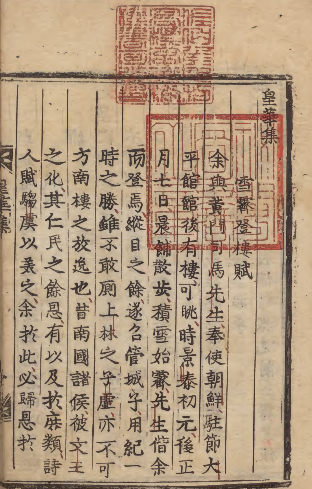 皇華集
雪霽登樓賦
余與黃門司馬先生奉使朝鮮駐節大
平館館後有樓可眺時景泰初元後正
月七日晨餔散步積雪始霽先生偕余
而登焉縱目之餘遂召管城子用紀一
時之勝雖不敢厠上林之子虛亦不可
方南樓之故逸也昔南國諸侯被文王
之化其仁民之餘恩有以及於庶類詩
人賦騶虞以美之余於此必歸恩於
皇華集